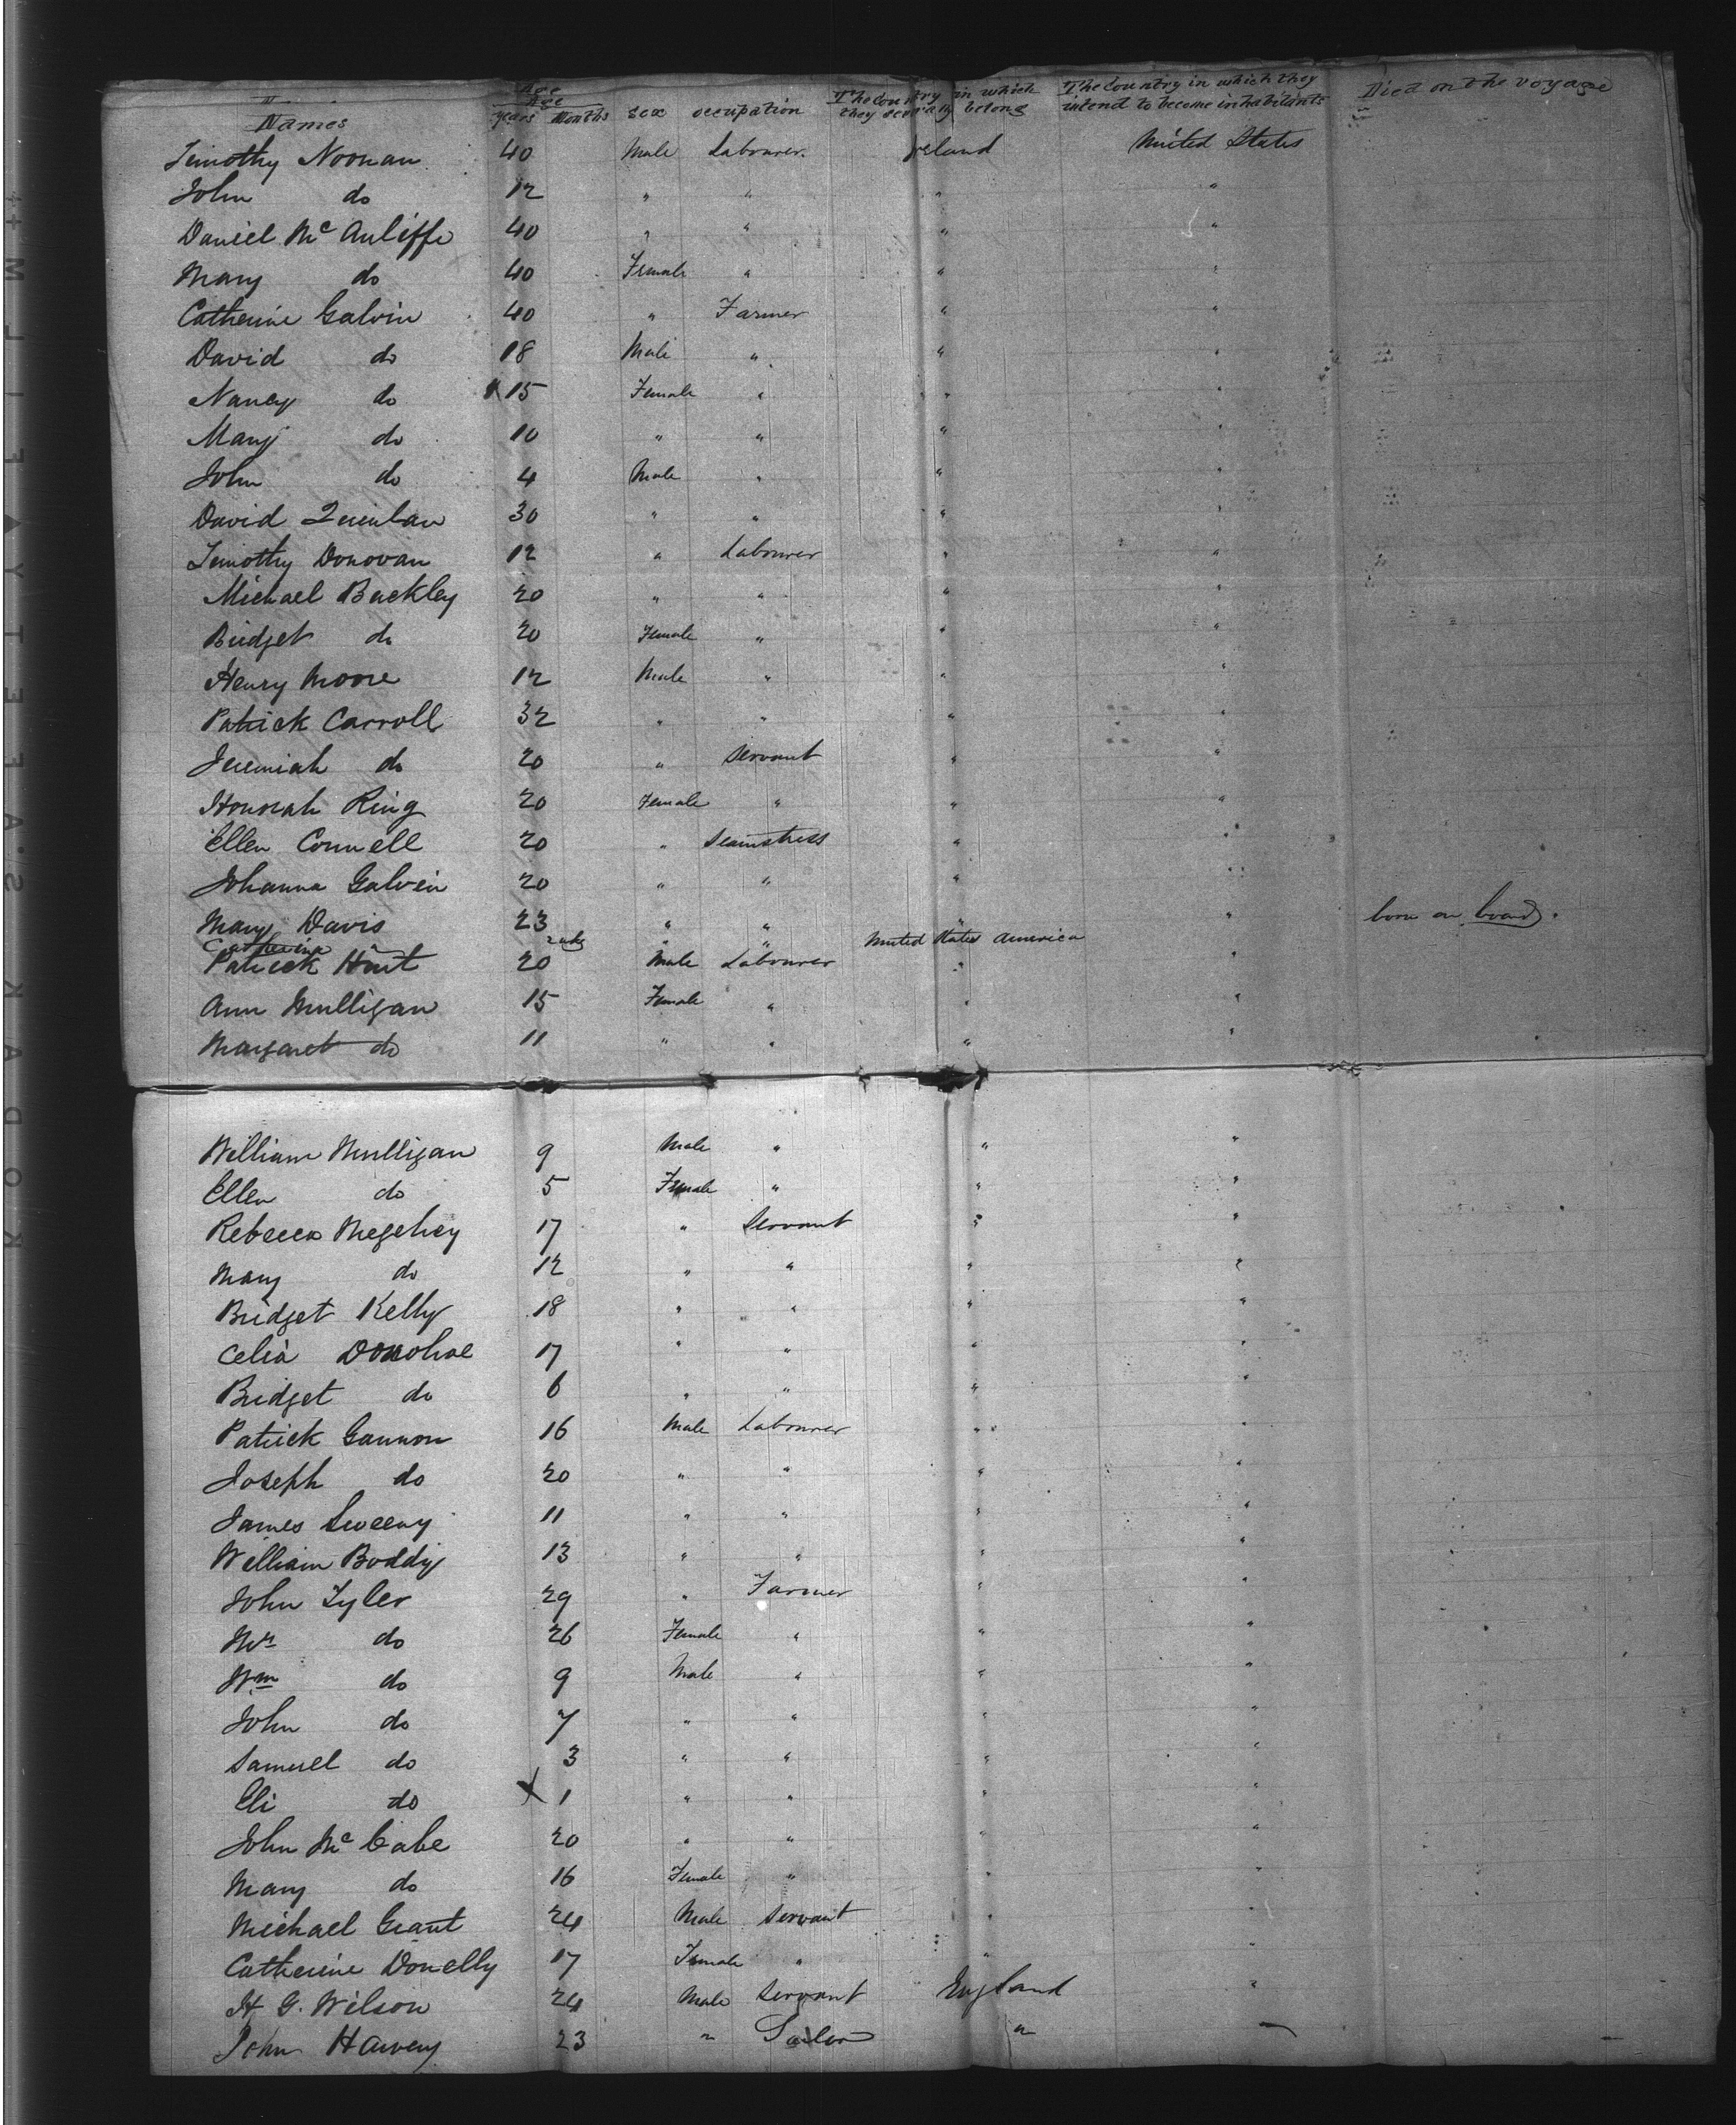 Names Age years Months sex occupation The country in which they severally belong The country in which they intend to become inhabitants Died on the voyage
Timothy Noonan 40 Male Labourer. Ireland United States
John do 12 " " " "
Daniel Mc Auliffe 40 " " " "
Mary do 40 Female " " "
Catherine Galvin 40 " Farmer " "
David do 18 Male " " "
Nancy do 15 Female " " "
Mary do 10 " " " "
John do 4 Male " " "
David Quinlan 30 " " " "
Timothy Donovan 12 " Labourer " "
Michael Buckley 20 " " " "
Bridget do 20 Female " " "
Henry Moore 12 Male " " "
Patrick Carroll 32 " " " "
Jeremiah do 20 " Servant " "
Honorah Ring 20 Female " " "
Ellen Connell 20 " Seamstress " "
Johanna Galvin 20 " " " "
Mary Davis 23 " " " " born on board.
Catherine " " " United States America
Patrick Hunt 20 Male Labourer " "
Ann Mulligan 15 Female " " "
Margaret do 11 " " " "
William Mulligan 9 Male " " "
Ellen do 5 Female " " "
Rebecca Megehey 17 " Servant " "
Mary do 12 " " " "
Bridget Kelly 18 " " " "
Celia Donohoe 17 " " " "
Bridget do 6 " " " "
Patrick Gannon 16 Male Labourer " "
Joseph do 20 " " " "
James Sweeny 11 " " " "
William Boddy 13 " " " "
John Tyler 29 " Farmer " "
Mrs do 26 Female " " "
Wm do 9 Male " " "
John do 7 " " " "
Samuel do 3 " " " "
Eli do 1 " " " "
John Mc Cabe 20 " " " "
Mary do 16 Female " " "
Michael Grant 24 Male Servant " "
Catherine Donelly 17 Female " " "
H G. Wilson 24 Male Servant England "
John Harvey 23 " Sailor "